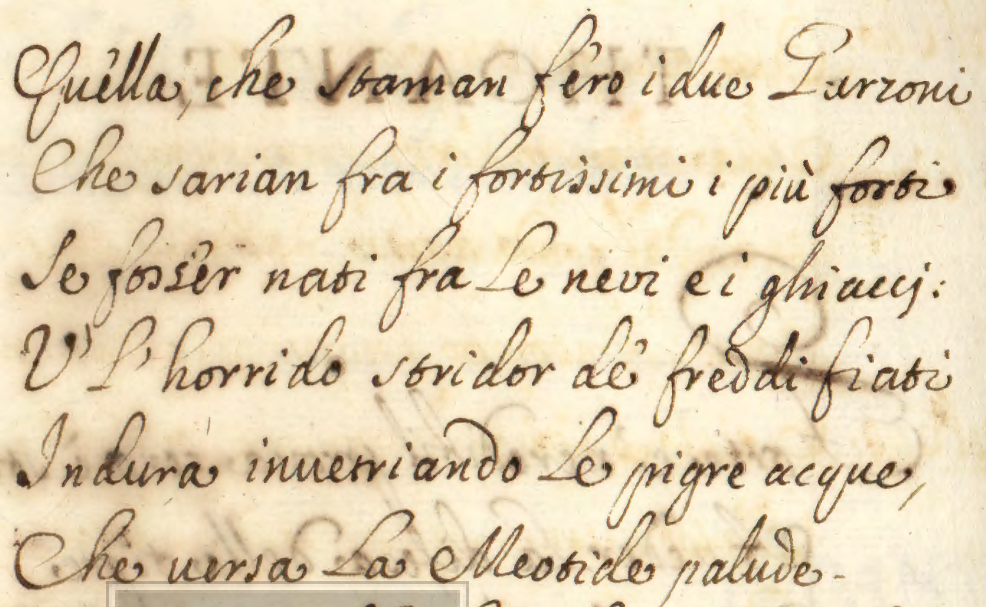 Quella, che staman féro i due Garzoni
Che sarian fra i fortissimi i più forti
Se fosser nati fra Le nevi e i ghiacci:
V' L'horrido stridor de' freddi fiati
Indura invetriando Le pigre acque,
Che versa La Meotide palude.